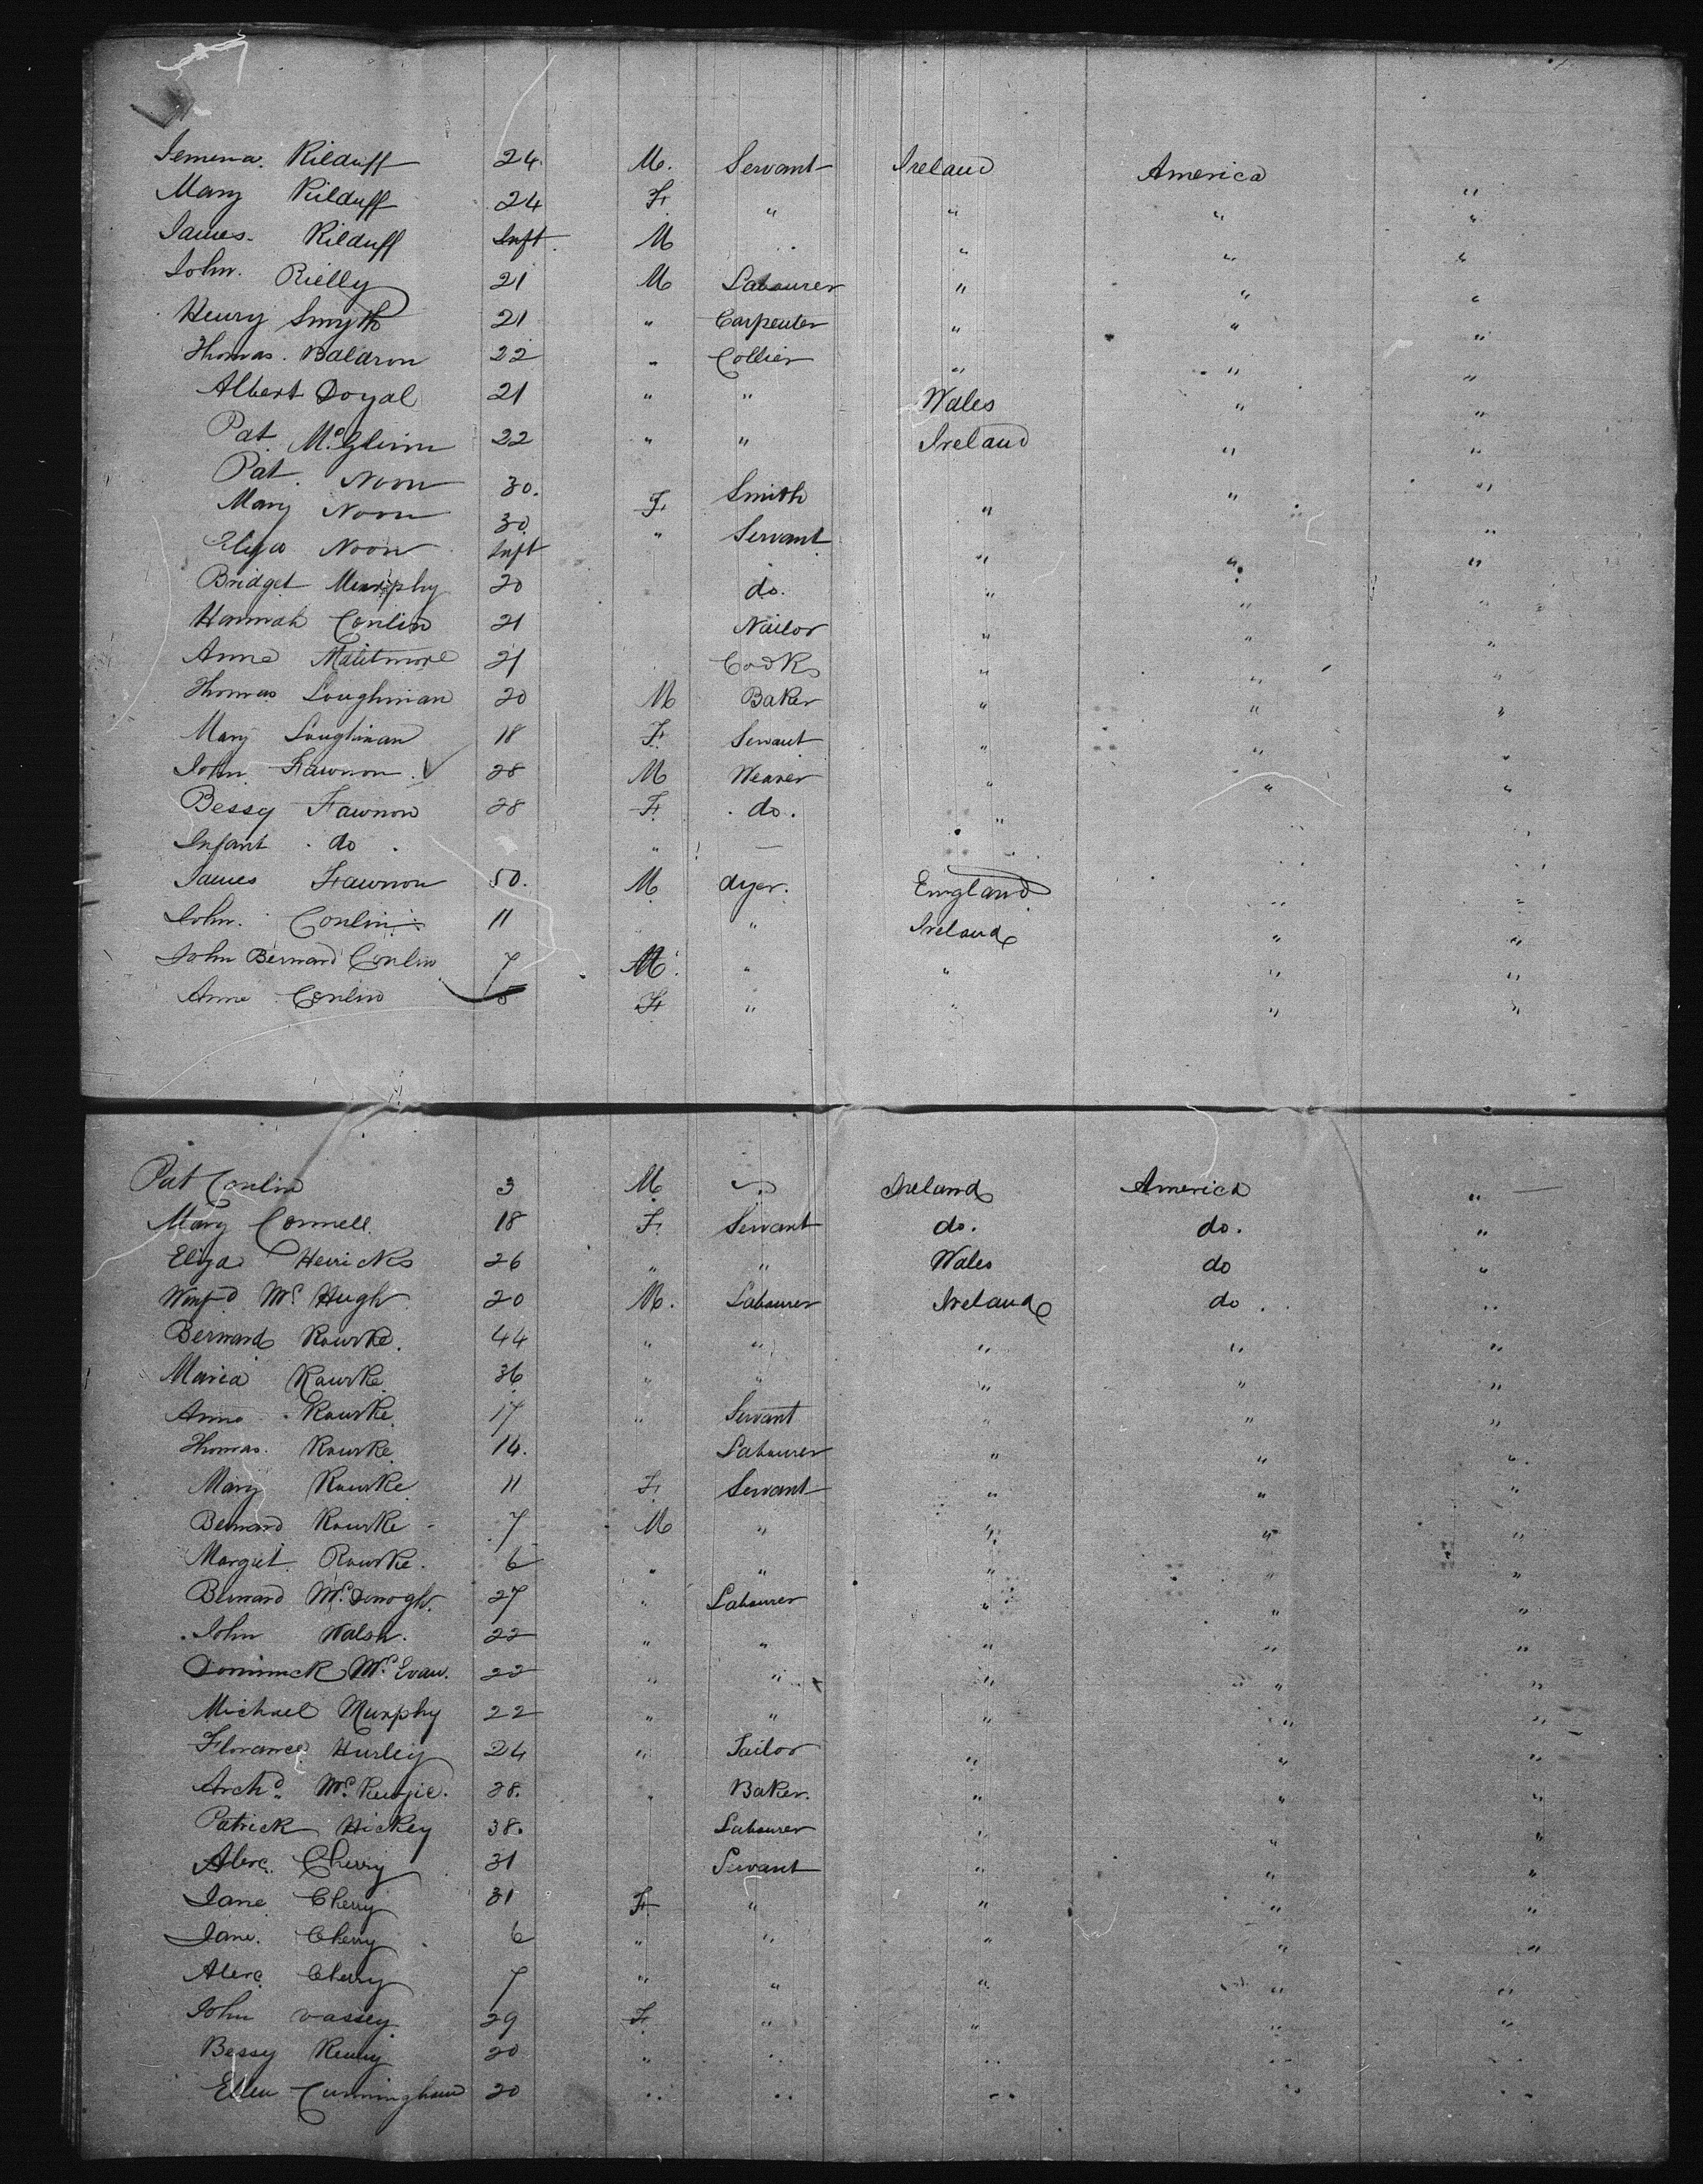 Jemema. Kilduff 24. M. Servant Ireland America "
Mary Kilduff 24 F. " " " "
James. Kilduff Inft. M " " "
John. Rielly 21 M Labourer " " "
Henry Smyth 21 " Carpenter " " "
Thomas. Baldron 22 " Collier " " "
Albert Doyal 21 " " Wales " "
Pat. McGlinn 22 " " Ireland " "
Pat. Noon 30. Smith " " "
Mary Noon 30 F. Servant
Eliza Noon Inft " " " "
Bridget Murphy 20 do. " " "
Hannah Conlin 21 Nailor " " "
Anne 21 Cook " " "
Thomas Loughman 20 M Baker " " "
Mary Loughman 18 F. Servant " " "
John Fawnon. √ 28 M Weaver " " "
Bessy Fawnon 28 F. do. "
Infant do. " —
James Fawnon 50. M dyer. England " "
John. Conlin 11 " Ireland " "
John Bernard Conlin 7 M. " " " "
Anne Conlin 5 F. " " " "
Pat Conlin 3 M " Ireland America " —
Mary Connell 18 F. Servant do. do. "
Eliza Herricks 26 " " Wales do "
Winfd McHugh 20 M. Labourer Ireland do. "
Bernard Rourke. 44 " " " " "
Maria Rourke 36 " " " " "
Anne Rourke. 17 " Servant " " "
Thomas. Rourke. 14. Labourer " " "
Mary Rourke. 11 F. Servant " " "
Bernard Rourke 7 M " " " "
Margret. Rourke. 6 " " " " "
Bernard McDonogh. 27 " Labourer " " "
John Walsh. 22 " " " " "
Dominick McEvan. 22 " " " " "
Michael Murphy 22 " " " " "
Florance Hurley 24 " Tailor " " "
Archd. McKenzie. 28. " Baker. " " "
Patrick Hickey 38. Labourer " " "
Alexr. Cherry 31 Servant " " "
Jane Cherry 31 F " " " "
Jane. Cherry 6 " " " " "
Alexr. Cherry 7 " " " " "
John Vassey 29 F. " " " "
Bessy Kenny 20 " " " " "
Ellen Cunningham 20 " " " " "